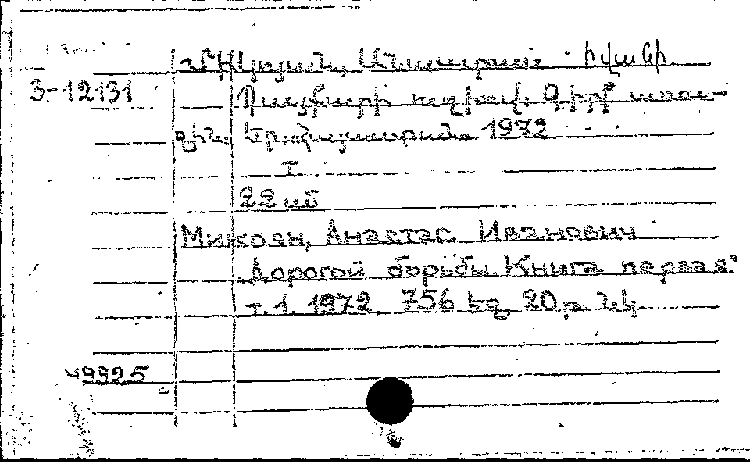 Միկոյան, Անաստաս Իվանի
3-12131
Պայքարի ուղիով. Գիրք առա-
ջին. Եր. Հայաստան. 1972
т.
22 սմ
Микоян, Анастас Иванович
Дорогой борьбы. Книга первая.
т. 1 1972. 756 եզ. 20 թ. նկ.
49925